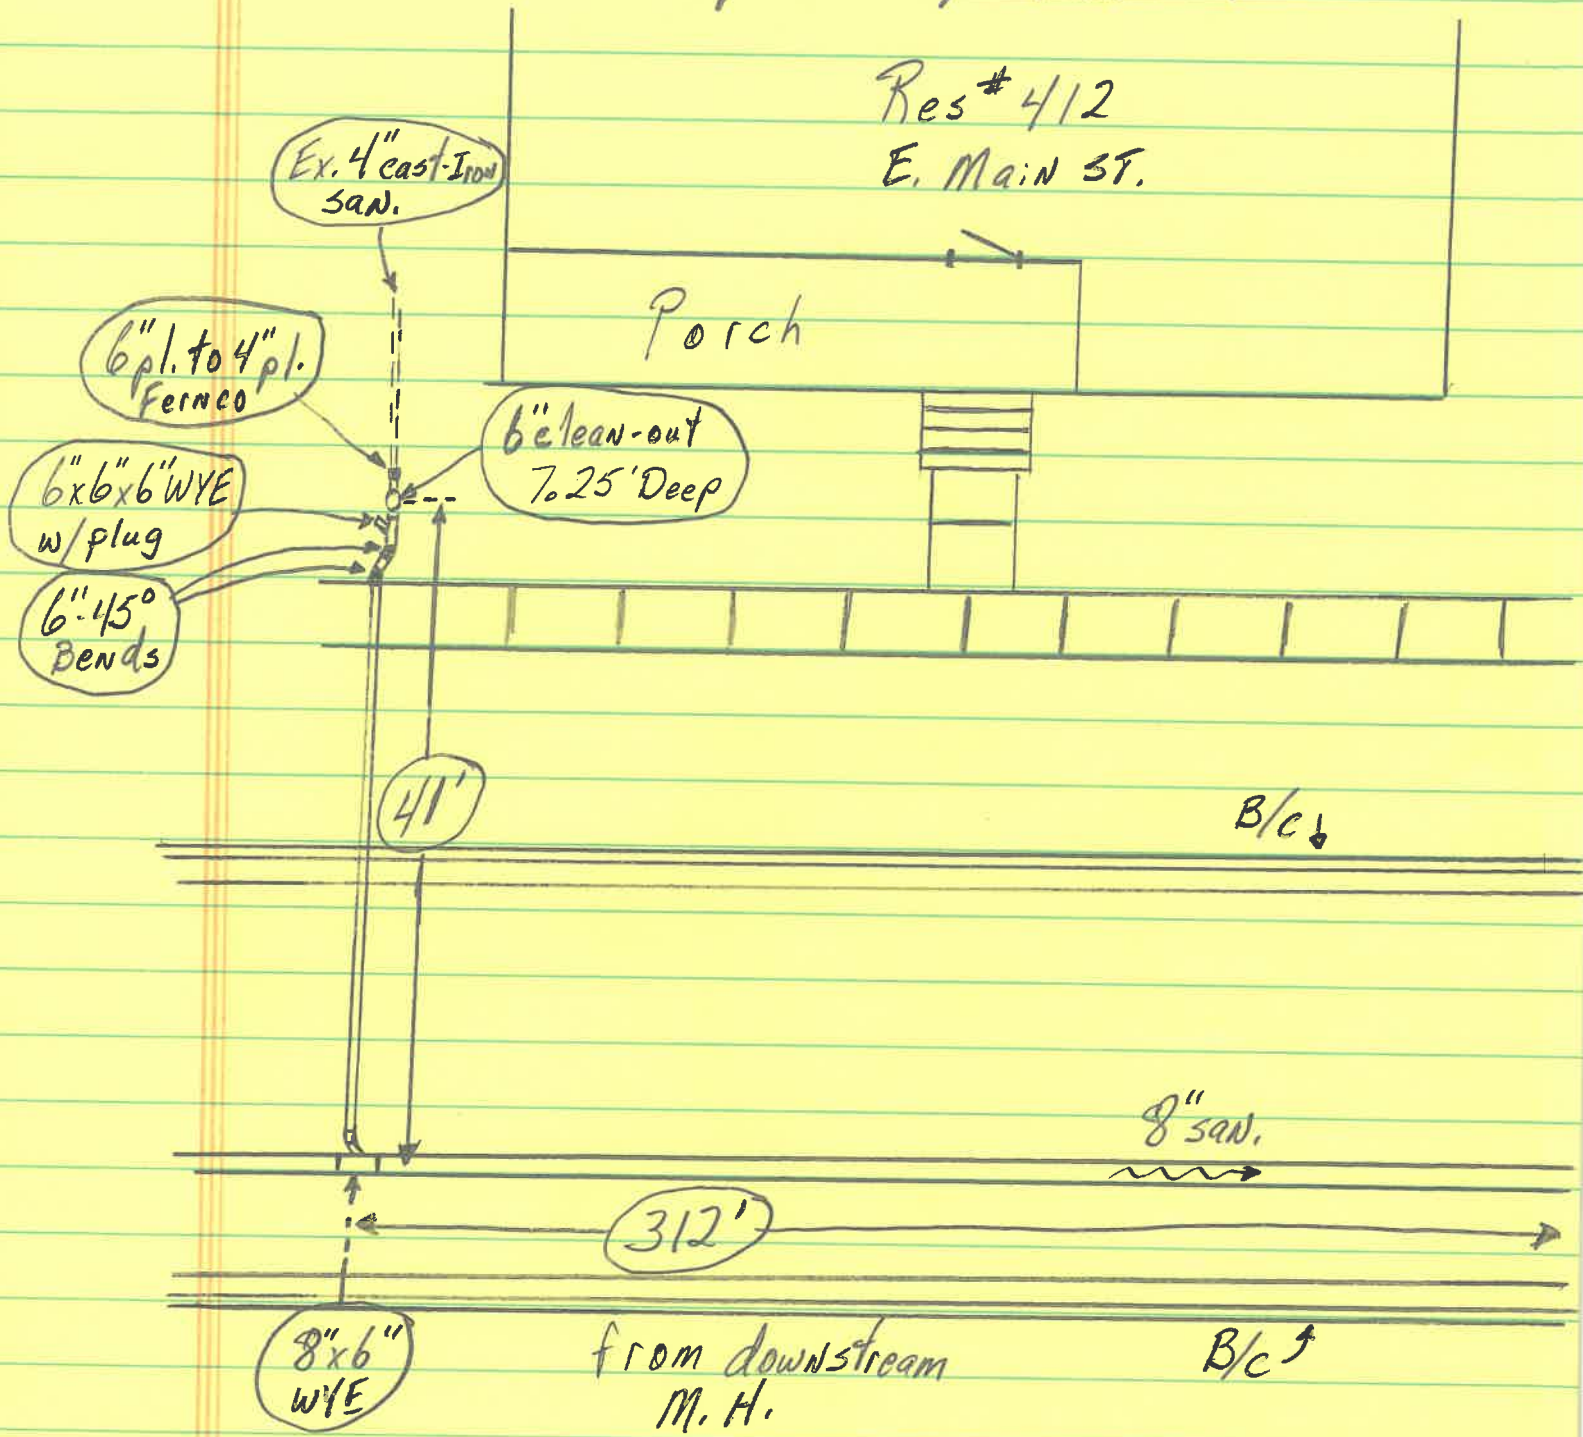 Res# 412
E. Main ST.
Ex. 4" cast-Iron
san.
Porch
6" pl. to 4" pl.
Fernco
6" clean-out
7.25' Deep
6"x6"x6" WYE
w/ plug
6"-45°
Bends
41'
B/c
8" san.
312'
8"x6"
WYE
from downstream
M.H.
B/c